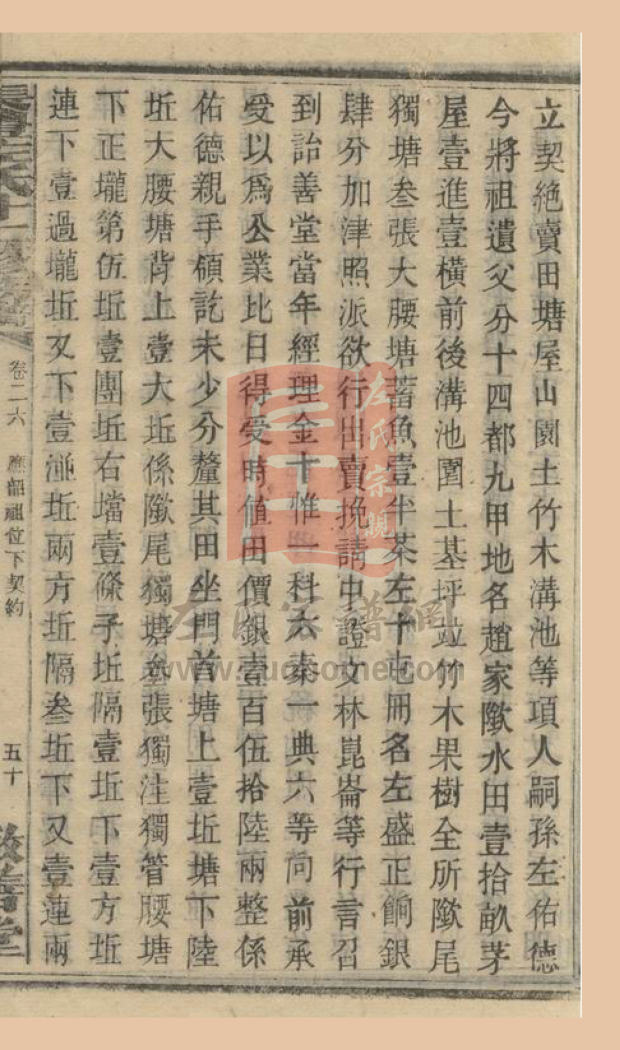 立契絶賣田塘屋山園土竹木溝池等項人嗣孫左佑德
今將祖遺父分十四都九甲地名趙家隞水田壹拾畝茅
屋壹進壹橫前後溝池園土基坪竝竹木果樹全所隞尾
獨塘叁張大腰塘蓄魚壹半茶左十屯冊名左盛正餉銀
肆分加津照派欲行出賣挽請中證文林崑崙等行言召
到詒善堂當年經理金十惟一科六泰一典六等向前承
受以爲公業比日得受時値田價銀壹百伍拾陸兩整係
佑德親手領訖未少分釐其田坐門首塘上壹坵塘下陸
坵大腰塘背上壹大坵係隞尾獨塘叁張獨注獨管腰塘
下正壠第伍坵壹團坵右壋壹條子坵隔壹坵下壹方坵
連下壹過壠坵又下壹坵兩方坵隔叁坵下又壹連兩
卷二六
韶祖位下契約
五十
左氏宗親
www.zuoshome.com